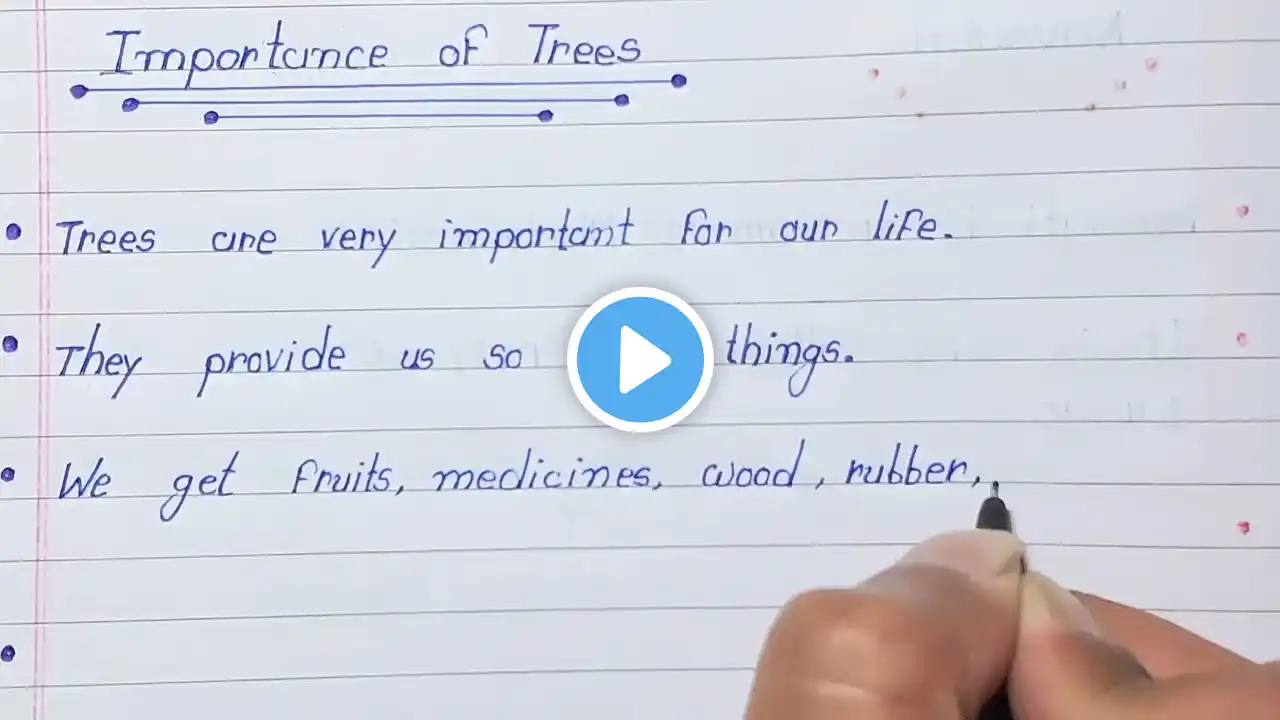 Importance of Trees
• Trees are very important for our life.
• They provide us so things.
• We get fruits, medicines, wood, rubber,
•